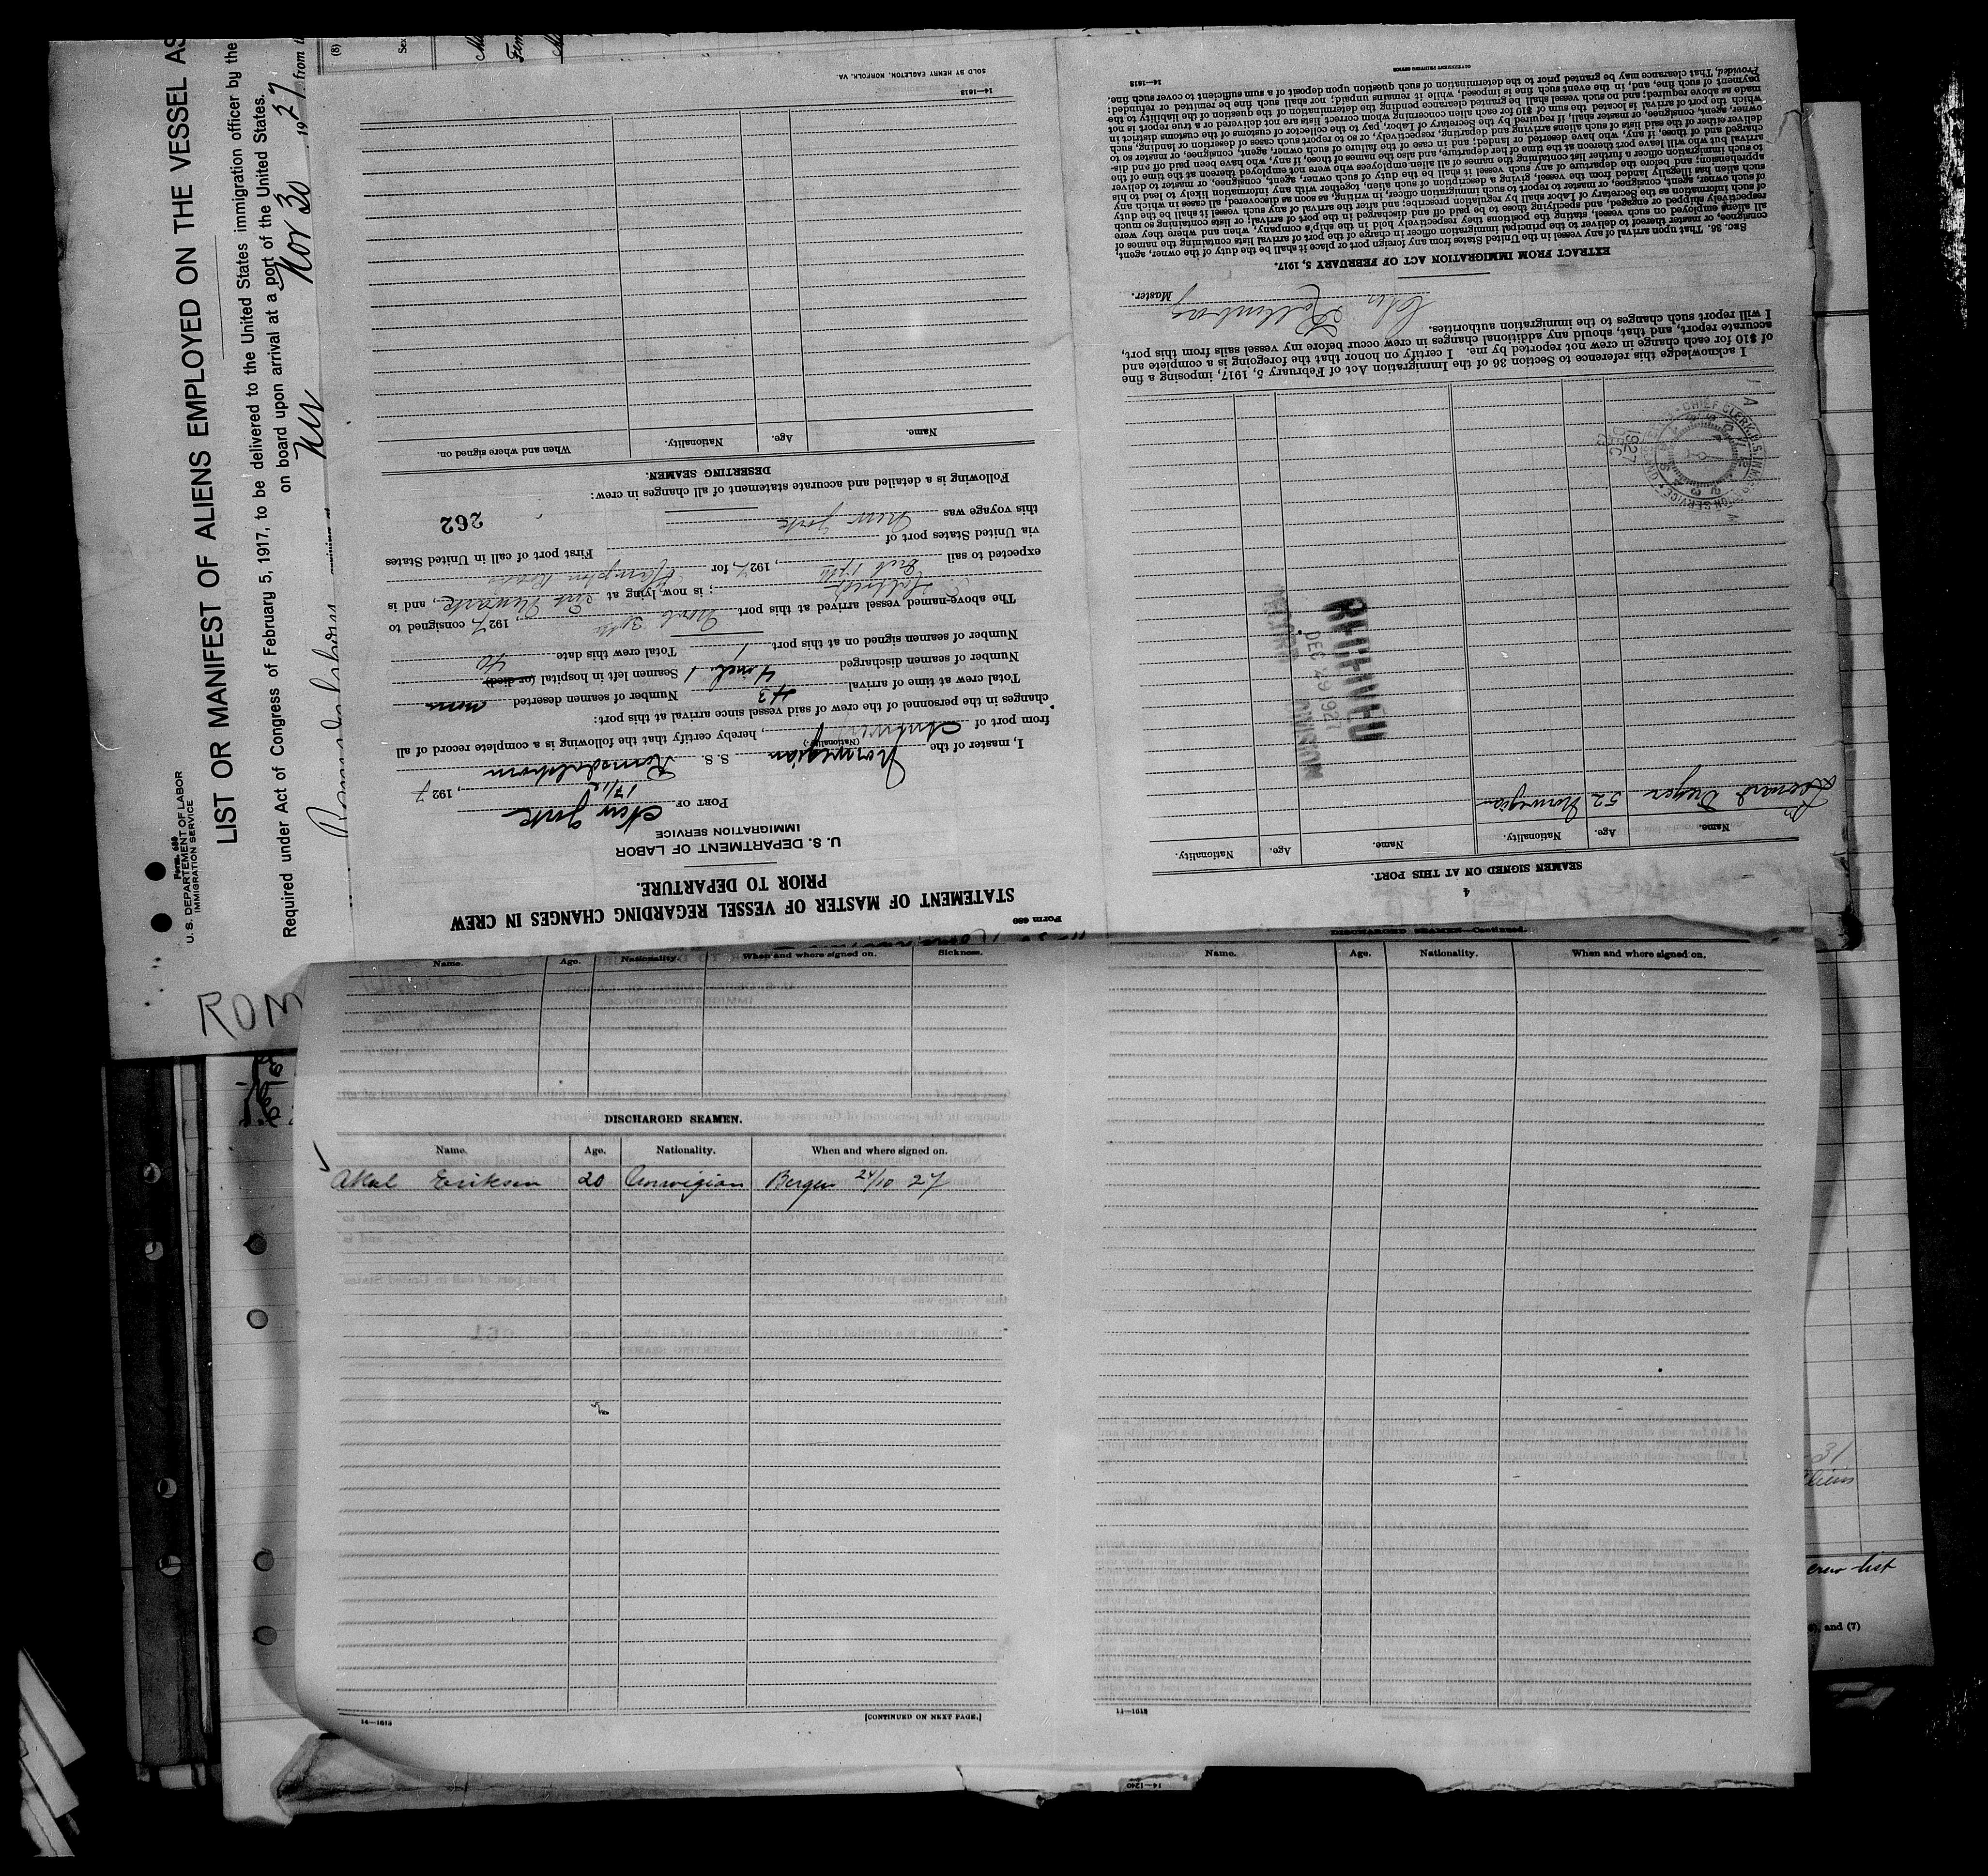 Form 689
U. S. DEPARTEMENT OF LABOR
IMMIGRATION SERVICE
LIST OR MANIFEST OF ALIENS EMPLOYED ON THE VESSEL AS
Required under Act of Congress of February 5, 1917, to be delivered to the United States immigration officer by the
on board upon arrival at a port of the United States.
Nov 30 1927 from
ROM
(8)
Sex
Form 689
STATEMENT OF MASTER OF VESSEL REGARDING CHANGES IN CREW
PRIOR TO DEPARTURE.
U. S. DEPARTMENT OF LABOR
IMMIGRATION SERVICE
PORT OF New York
17/12, 1927
I, master of the Norwegian S. S. Romsdalshorn
(Nationality.)
from port of Antwerp, hereby certify that the following is a complete record of all
changes in the personnel of the crew of said vessel since arrival at this port:
Total crew at time of arrival 43 Number of seamen deserted none
Number of seamen discharged Seamen left in hospital (or died) 1
Number of seamen signed on at this port 1 Total crew this date 40
The above-named vessel arrived at this port 1927, consigned to
; is now lying at Port Newark, and is
expected to sail 17th, 1927 for Hampton Roads
via United States port of First port of call in United States
this voyage was New York
262
Following is a detailed and accurate statement of all changes in crew:
DESERTING SEAMEN.
Name. Age. Nationality. When and where signed on.
14—1618
SOLD BY HENRY EAGLETON, NORFOLK, VA.
4
SEAMEN SIGNED ON AT THIS PORT.
Name. Age. Nationality. Name. Age. Nationality.
52 Norwegian
RECEIVED
DEC 29 1927
1927
DEC
CHIEF CLERK
I acknowledge this reference to Section 36 of the Immigration Act of February 5, 1917, imposing a fine
of $10 for each change in crew not reported by me. I certify on honor that the foregoing is a complete and
accurate report, and that, should any additional changes in crew occur before my vessel sails from this port,
I will report such changes to the immigration authorities.
Master.
EXTRACT FROM IMMIGRATION ACT OF FEBRUARY 5, 1917.
SEC. 36. That upon arrival of any vessel in the United States from any foreign port or place it shall be the duty of the owner, agent,
consignee, or master thereof to deliver to the principal immigration officer in charge of the port of arrival lists containing the names of
all aliens employed on such vessel, stating the positions they respectively hold in the ship's company, when and where they were
respectively shipped or engaged, and specifying those to be paid off and discharged in the port of arrival; or lists containing so much
of such information as the Secretary of Labor shall by regulation prescribe; and after the arrival of any such vessel it shall be the duty
of such owner, agent, consignee, or master to report to such immigration officer, in writing, as soon as discovered, all cases in which any
such alien has illegally landed from the vessel, giving a description of such alien, together with any information likely to lead to his
apprehension; and before the departure of any such vessel it shall be the duty of such owner, agent, consignee, or master to deliver
to such immigration officer a further list containing the names of all alien employees who were not employed thereon at the time of the
arrival but who will leave port thereon at the time of her departure, and also the names of those, if any, who have been paid off and dis-
charged and of those, if any, who have deserted or landed; and in case of the failure of such owner, agent, consignee, or master so to
deliver either of the said lists of such aliens arriving and departing, respectively, or so to report such cases of desertion or landing, such
owner, agent, consignee, or master shall, if required by the Secretary of Labor, pay to the collector of customs of the customs district in
which the port of arrival is located the sum of $10 for each alien concerning whom correct lists are not delivered or a true report is not
made as above required; and no such vessel shall be granted clearance pending the determination of the question of the liability to the
payment of such fine, and, in the event such fine is imposed, while it remains unpaid; nor shall such fine be remitted or refunded:
Provided, That clearance may be granted prior to the determination of such question upon deposit of a sum sufficient to cover such fine.
14—1618
GOVERNMENT PRINTING OFFICE
Name. Age. Nationality. When and where signed on. Sickness.
DISCHARGED SEAMEN.
Name. Age. Nationality. When and where signed on.
Eriksen 20 Norwigian Bergen 24/10 27
14—1618
[CONTINUED ON NEXT PAGE.]
DISCHARGED SEAMEN—Continued.
Name. Age. Nationality. When and where signed on.
11—1618
14—1240
31
crew list
(6), and (7)